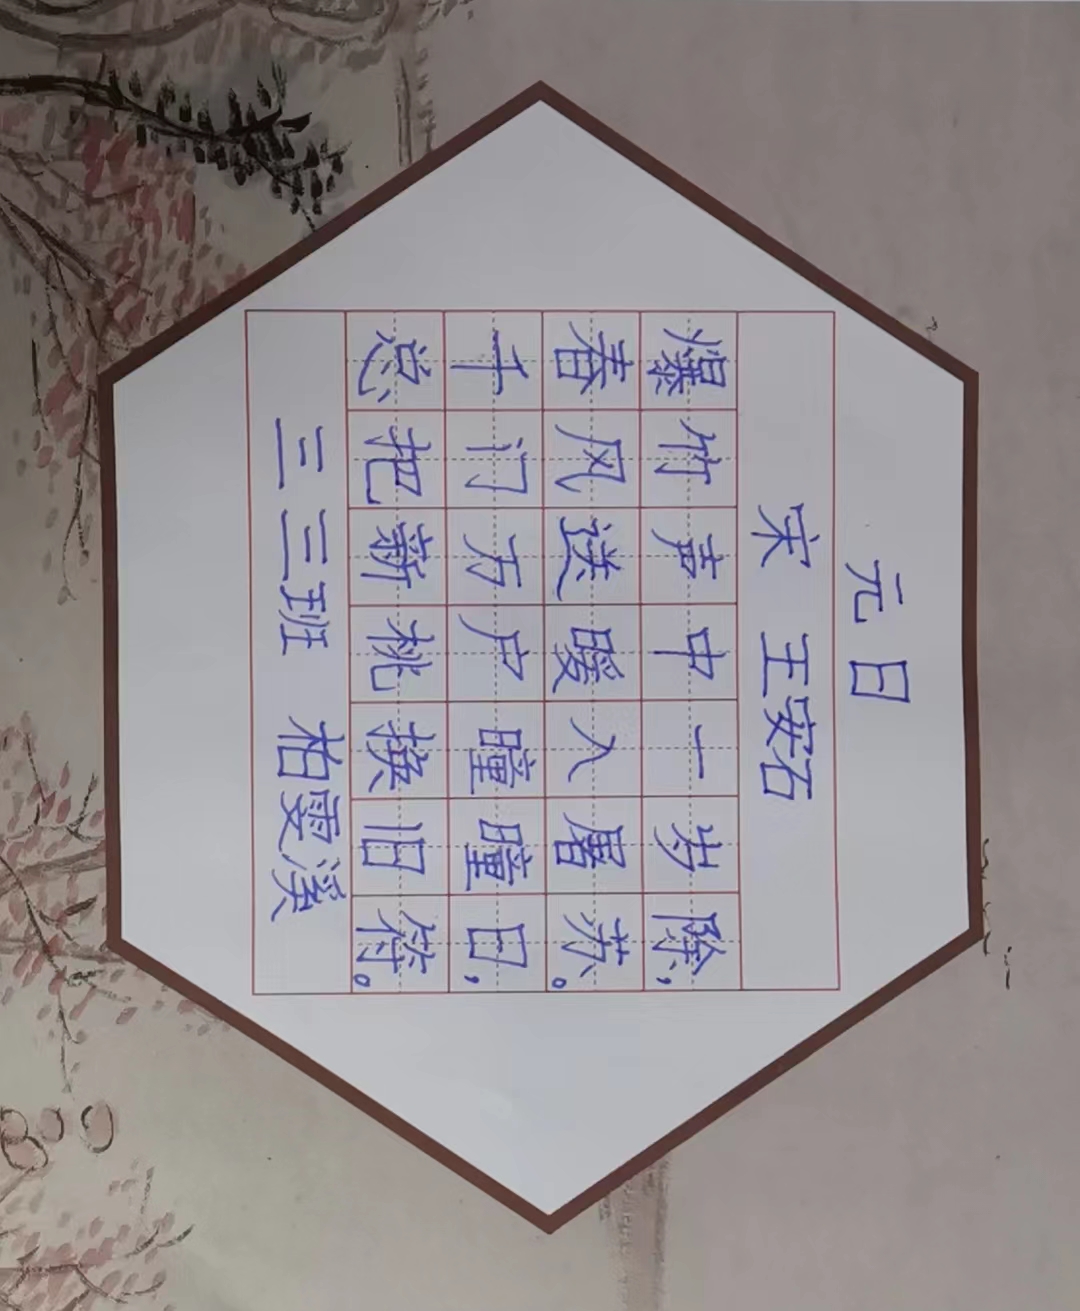 元日
宋 王安石
爆竹声中一岁除,
春风送暖入屠苏。
千门万户曈曈日,
总把新桃换旧符。
三 三班 柏雯溪